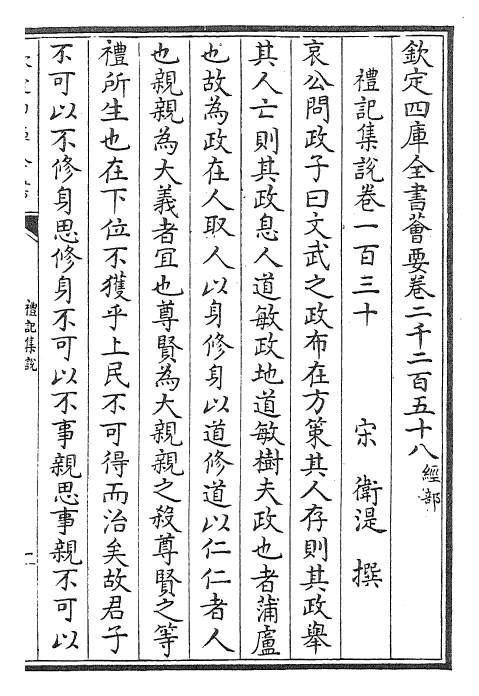 欽定四庫全書薈要卷二千二百五十八經部
禮記集說卷一百三十　宋　衛湜　撰
哀公問政子曰文武之政布在方策其人存則其政舉
其人亡則其政息人道敏政地道敏樹夫政也者蒲盧
也故為政在人取人以身修身以道修道以仁仁者人
也親親為大義者宜也尊賢為大親親之殺尊賢之等
禮所生也在下位不獲乎上民不可得而治矣故君子
不可以不修身思修身不可以不事親思事親不可以
禮記集說